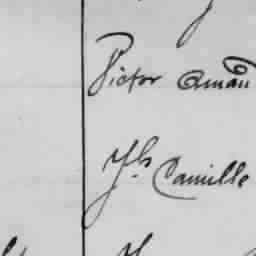 Victor Amand
Jh Camille